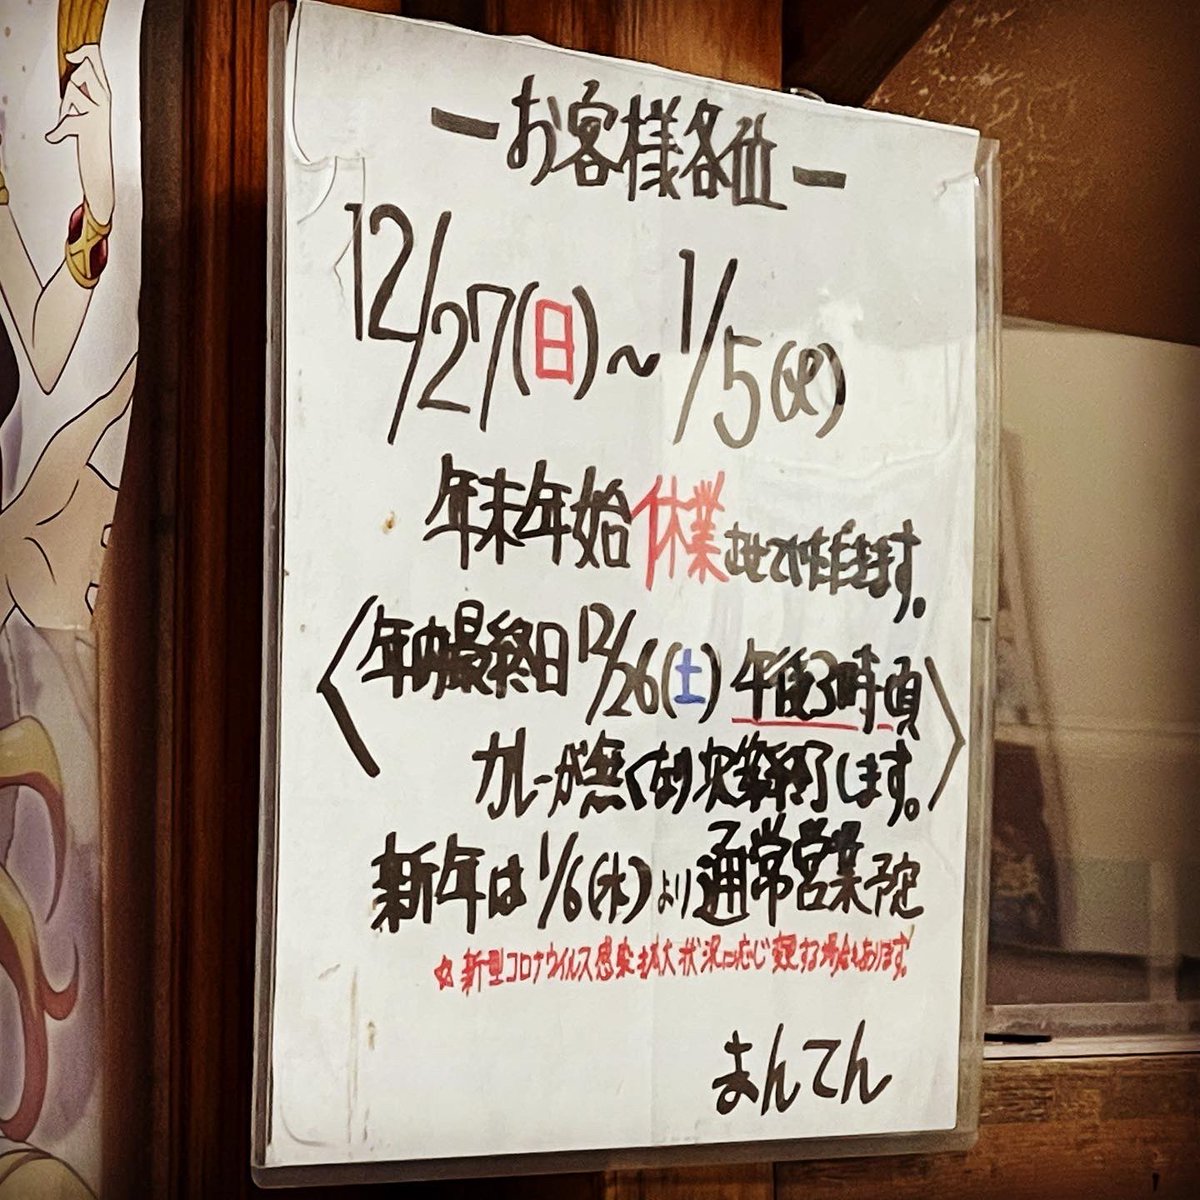 ーお客様各位ー
12/27(日)～1/5(火)
年末年始休業させて頂きます。
〈年内最終日12/26(土)午後3時頃
カレーが無くなり次第終了します。〉
新年は1/6(水)より通常営業予定
☆新型コロナウイルス感染拡大状況に応じ変更する場合もあります。
まんてん